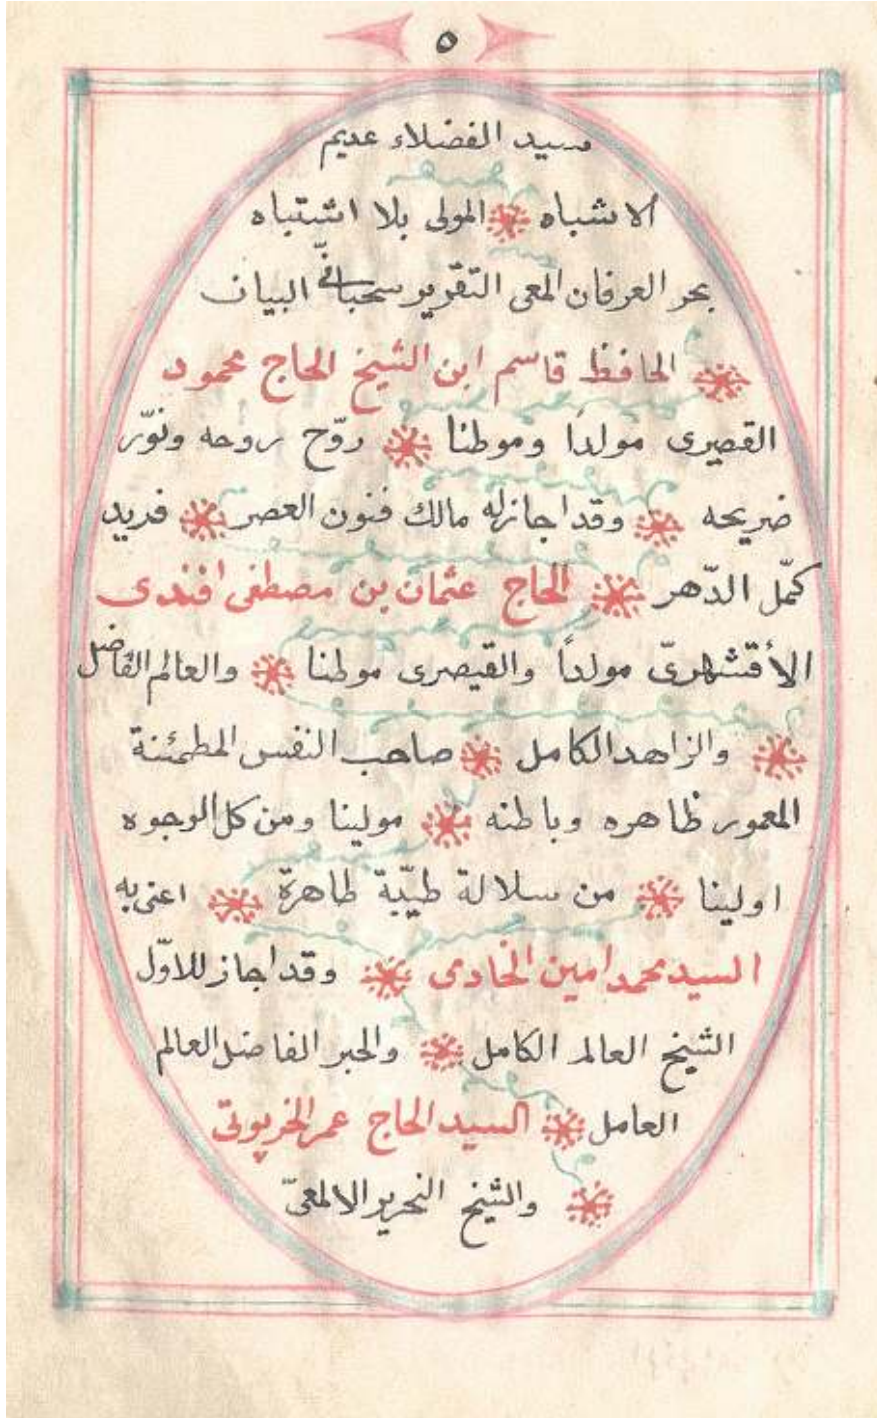 ٥
سيد الفضلاء عديم
الاشباه المولى بلا اشتباه
بحر العرفان المعى التقرير سحبانىّ البيان
الحافظ قاسم ابن الشيخ الحاج محمود
القصيرى مولداً وموطنا روّح روحه ونوّر
ضريحه وقد اجاز له مالك فنون العصر فريد
كمّل الدّهر الحاج عثمان بن مصطفى افندى
الأقشهرىّ مولداً والقيصرى موطنا والعالم الفاضل
والزاهد الكامل صاحب النفس المطمئنة
المعمور ظاهره وباطنه مولينا ومن كل الوجوه
اولينا من سلالة طيّبة طاهرة اعنى به
السيد محمد امين الخادمى وقد اجاز للاوّل
الشيخ العالم الكامل والحبر الفاضل العالم
العامل السيد الحاج عمر الخرپوتى
والشيخ النحرير الالمعىّ